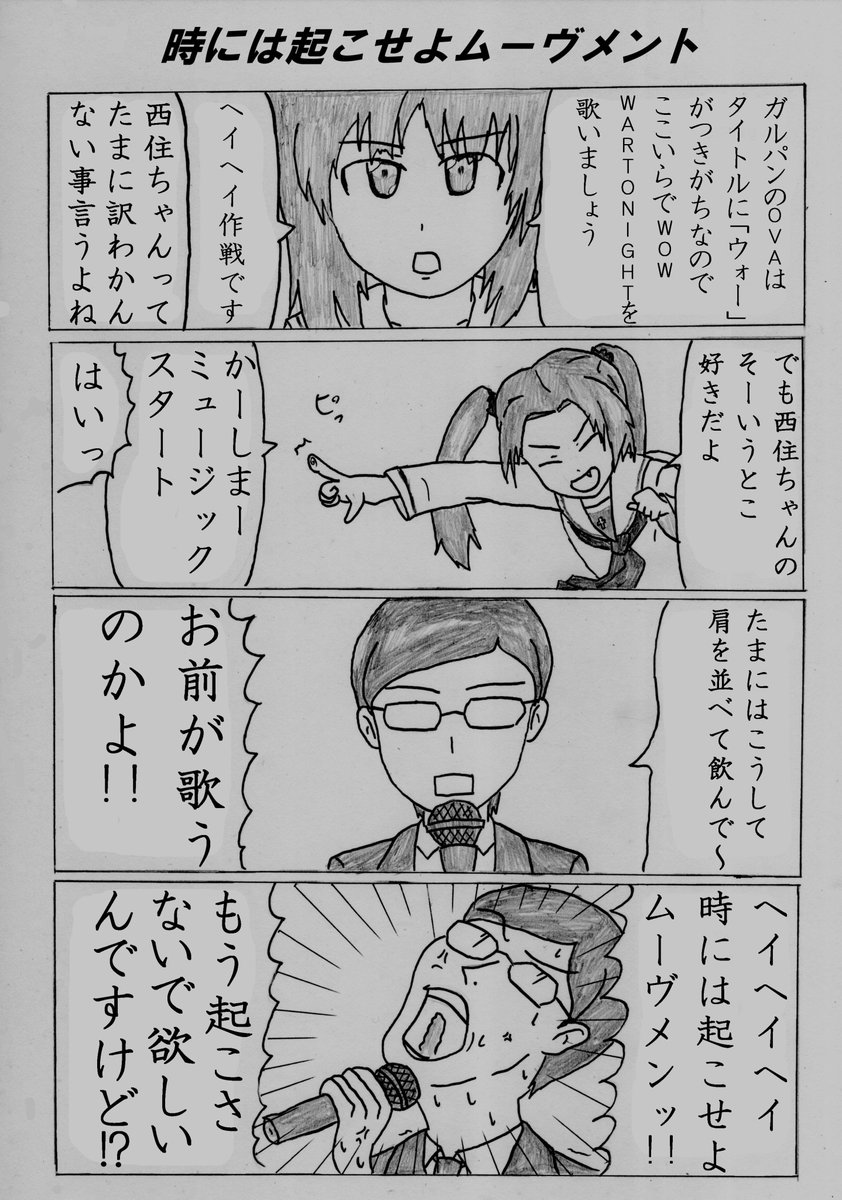 時には起こせよムーヴメント
ガルパンのOVAは
タイトルに「ウォー」
がつきがちなので
ここいらでWOW
WARTONIGHTを
歌いましょう
ヘイヘイ作戦です
西住ちゃんって
たまに訳わかん
ない事言うよね
でも西住ちゃんの
そーいうとこ
好きだよ
ピッ
かーしまー
ミュージック
スタート
はいっ
たまにはこうして
肩を並べて飲んで～
お前が歌う
のかよ!!
ヘイヘイヘイ
時には起こせよ
ムーヴメンッ!!
もう起こさ
ないで欲しい
んですけど!?